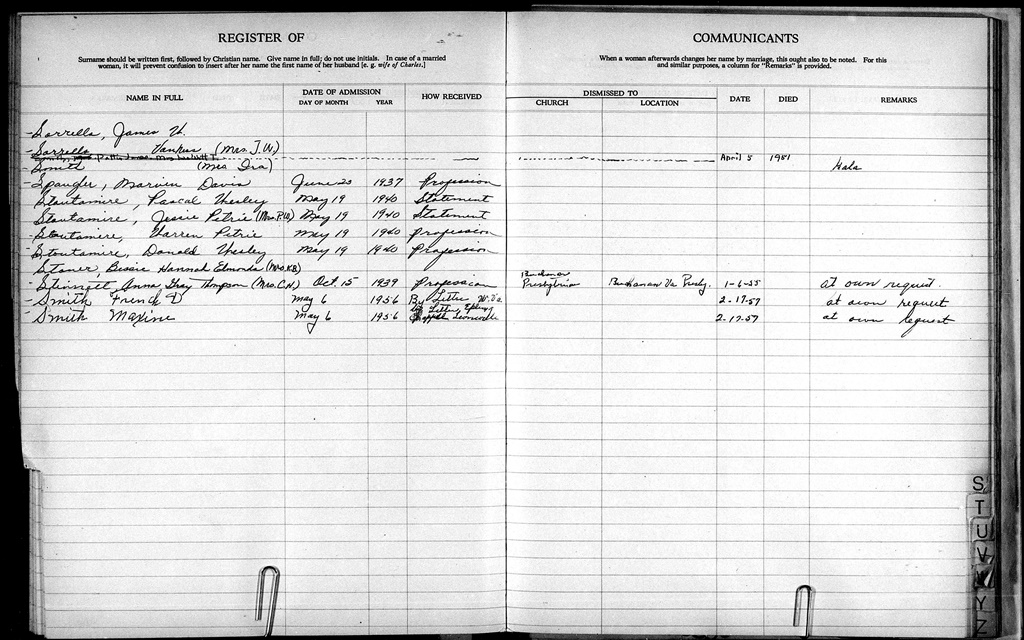 REGISTER OF
Surname should be written first, followed by Christian name. Give name in full; do not use initials. In case of a married
woman, it will prevent confusion to insert after her name the first name of her husband [e. g. wife of Charles.]
NAME IN FULL
DATE OF ADMISSION
DAY OF MONTH YEAR
HOW RECEIVED
COMMUNICANTS
When a woman afterwards changes her name by marriage, this ought also to be noted. For this
and similar purposes, a column for "Remarks" is provided.
DISMISSED TO
CHURCH LOCATION
DATE DIED REMARKS
Sorrells, James W.
Sorrells (Mrs. J. W.)
April 5 1951
Smith (Mrs Ira)
Spangler, Davis June 20 1937 Profession
Stoutamire, Pascal Wesley May 19 1940 Statement
Stoutamire, Jessie Petrie (Mrs. P.W.) May 19 1940 Statement
Stoutamire, Warren Petrie May 19 1940 Profession
Stoutamire, Donald Wesley May 19 1940 Profession
Stoner, Bessie Hannah Edmonds (Mrs. K.B.)
Anna Gray Thompson (Mrs. C.N.) Oct. 15 1939 Profession Buchanan Presbyterian Buchanan Va. 1-6-55 at own request.
Smith D May 6 1956 By Letter W. Va. 2-17-57 at own request
Smith Maxine May 6 1956 by Letter 2-17-57 at own request
S
T
U
V
W
Y
Z